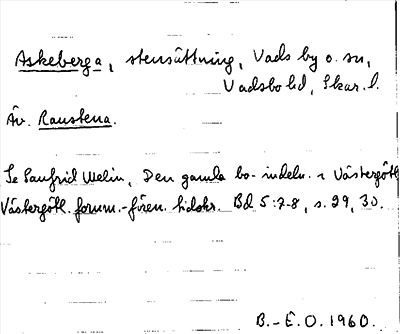 Askeberga, stensättning, Vads by o. sn,
Vadsbo hd, Skar. l.
Äv. Ranstena.
Se Sanfrid Welin, Den gamla bo-indeln. i Västergötl.
Västergötl. fornm.-fören. tidskr. Bd 5:7-8, s. 29, 30.
B.-E.O. 1960.